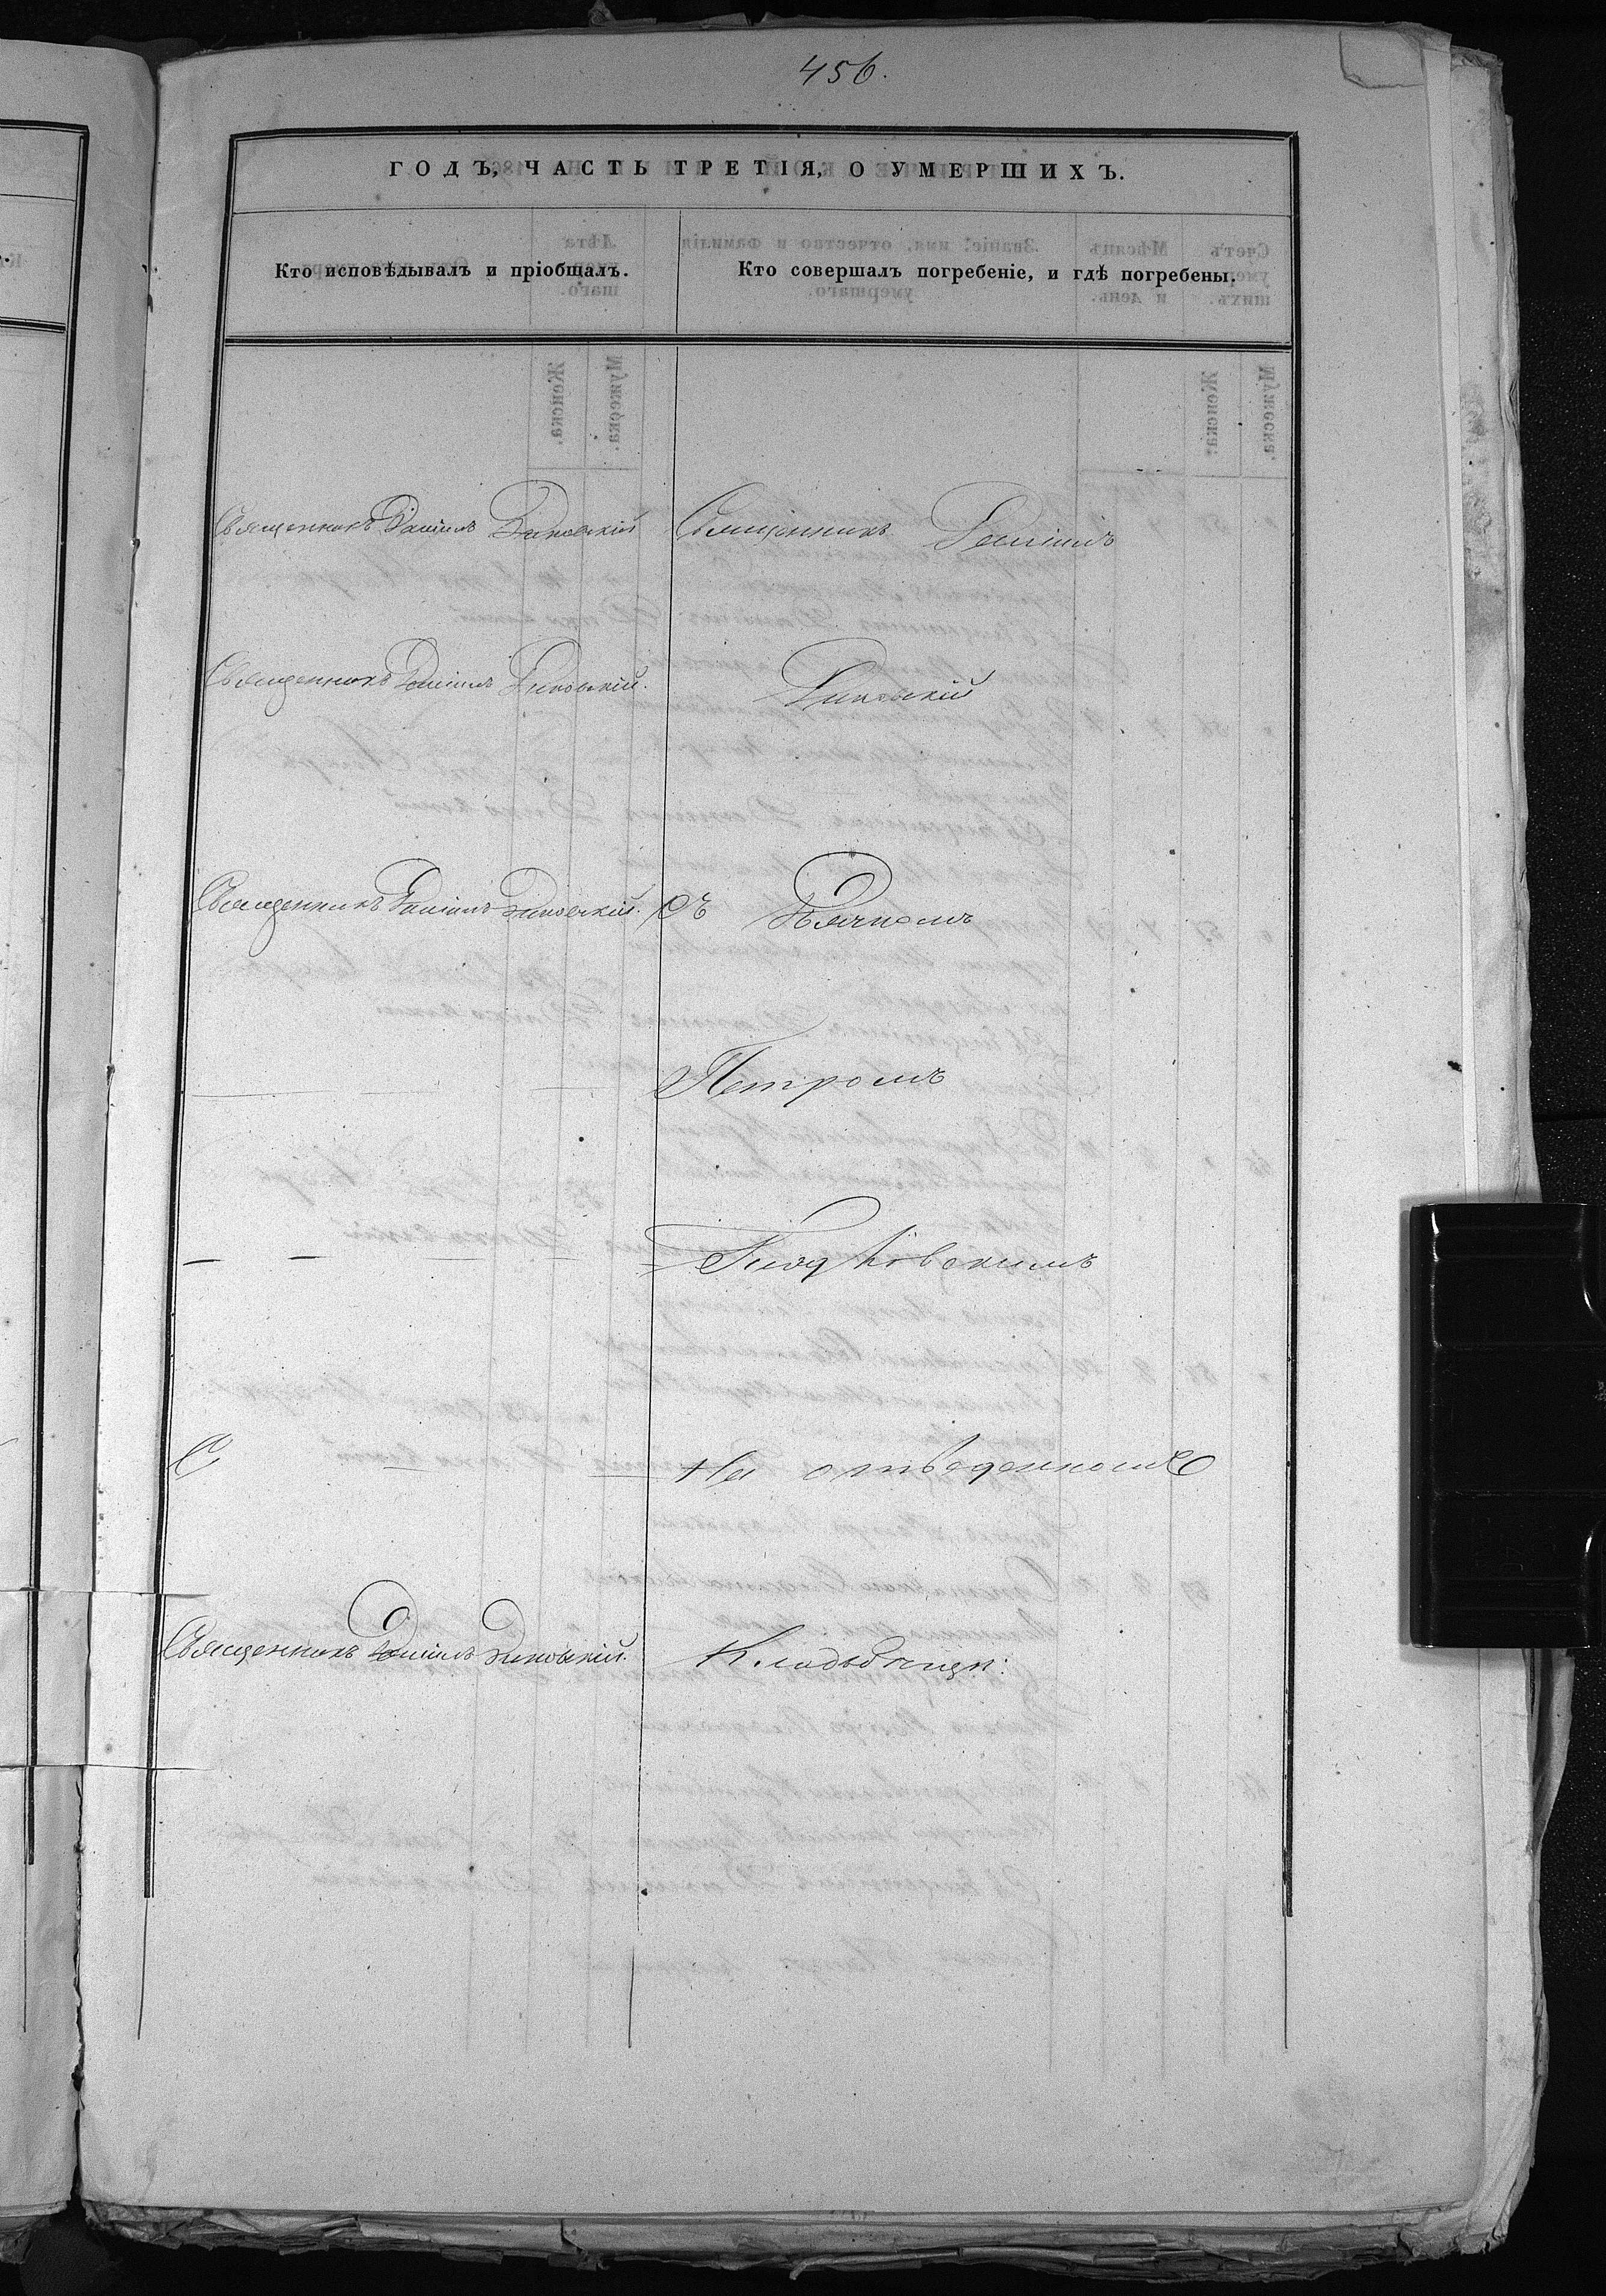 456.
ГОДЪ, ЧАСТЬ ТРЕТІЯ, О УМЕРШИХЪ.
Кто исповѣдывалъ и пріобщалъ.
Кто совершалъ погребеніе, и гдѣ погребены.
Священникъ Даніилъ Диковскій
Священникъ Даніилъ
Священникъ Даніилъ Диковскій.
Диковскій
Священникъ Даніилъ Диковскій.
Съ Дьячкомъ
Петромъ
На отведенномъ
Священникъ Даніилъ Диковскій.
Кладбищи: